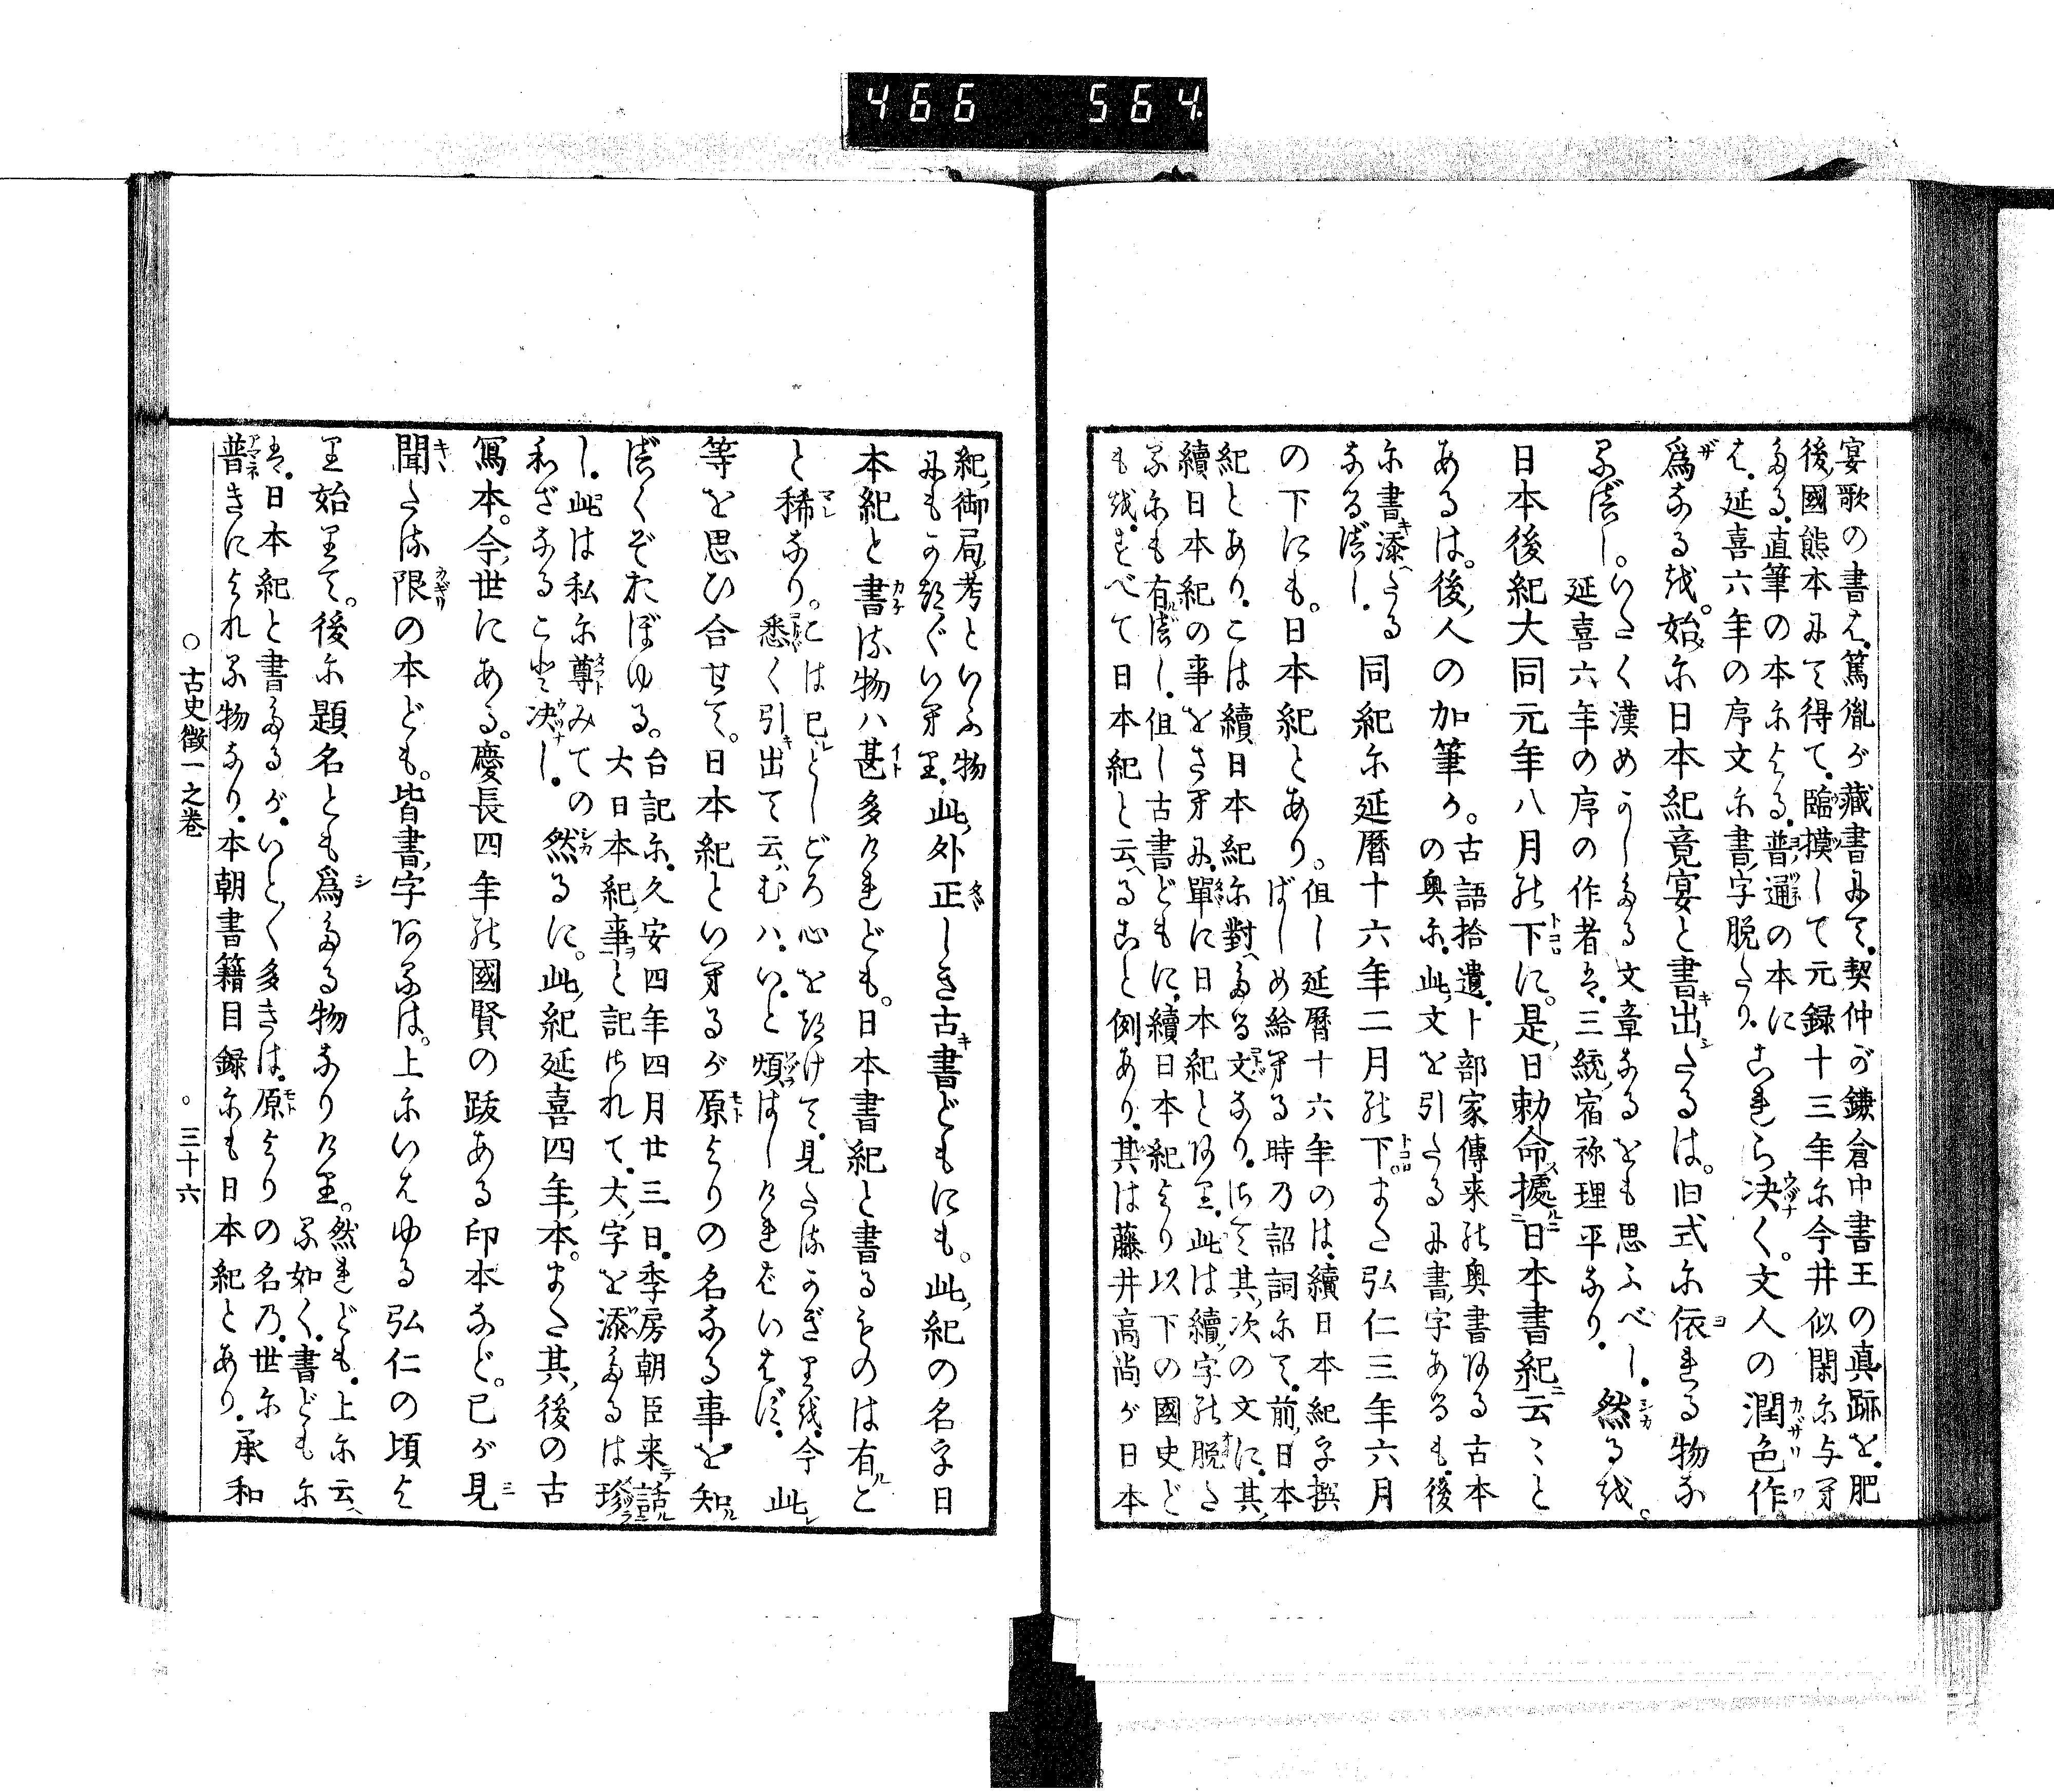 466 564
宴歌の書を。篤胤が藏書にて。契仲が鎌倉中書王の真跡を。肥
後國熊本にて得て。臨摸して元録十三年に今井似閑に与へ
たる。直筆の本による。普通の本に
は。延喜六年の序文に書字脱たり。これら决く。文人の潤色作
爲なるを。始に日本紀竟宴と書出したるは。旧式に依れる物な
るべし。いたく漢めかしたる文章なるをも思ふべし。然るを。
延喜六年の序の作者は。三統宿祢理平なり。
日本後紀大同元年八月の下に。是日勅命據日本書紀云々と
あるは。後人の加筆か。古語拾遺。卜部家傳来の奥書ある古本
の奥に。此文を引たるに書字あるも。後
に書添たる
なるべし。同紀に延暦十六年二月の下。また弘仁三年六月
の下にも。日本紀とあり。但し延暦十六年のは。續日本紀字撰
ばしめ給へる時乃詔詞にて。前日本
紀とあり。こは續日本紀に對へたる文なり。さて其次の文に。其
續日本紀の事をさへに。單に日本紀とあり。此は續字の脱た
るにも有べし。但し古書どもに。續日本紀より以下の國史ど
もを。すべて日本紀と云へること例あり。其は藤井高尚が日本
紀御局考といふ物
にもかつがついへり。此外正しき古書どもにも。此紀の名字日
本紀と書る物ハ甚多けれども。日本書紀と書るものは有こ
と稀なり。こは已としごろ心をつけて。見たるかぎりを。今此
悉く引出て云ハむハ。いと煩はしければいはず。
等を思ひ合せて。日本紀といへるが原よりの名なる事を知
べくぞおぼゆる。台記に。久安四年四月廿三日。季房朝臣来話
大日本紀事と記されて。大字を添たるは珍
し。此は私に尊みての
わざなること决し。然るに。此紀延喜四年本。また其後の古
寫本。今世にある。慶長四年の國賢の跋ある印本など。已が見
聞たる限の本ども。皆書字あるは。上にいはゆる弘仁の頃よ
り始りて。後に題名とも爲たる物なりけり。然れども。上に云
る如く。書どもに
は。日本紀と書たるが。いと〱多きは。原よりの名乃。世に
普きによれる物なり。本朝書籍目録にも日本紀とあり。承和
○古史徴一之卷 ○三十六